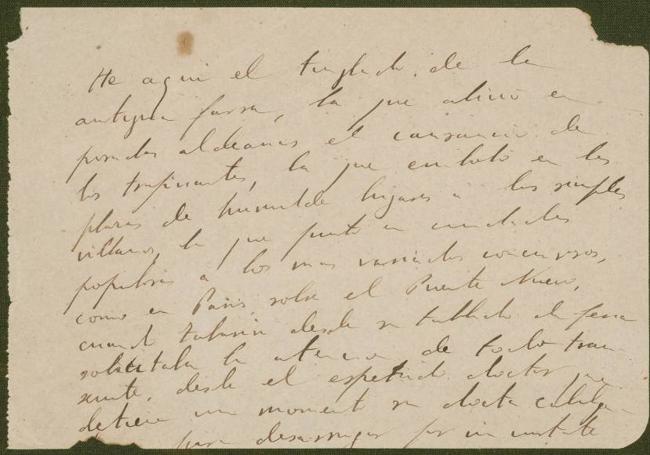 He aqui el tinglado de la
antigua farsa, la que alivió en
posadas aldeanas el cansancio de
los trajinantes, la que embobó en las
plazas de humildes lugares a los simples
villanos, la que juntó en ciudades
populosas a los mas variados concursos,
como en Paris sobre el Puente Nuevo,
cuando Tabarin desde su tablado de feria
solicitaba la atencion de todo tran
seunte, desde el espetado doctor que
detiene un momento su docta cabalga
para desarrugar por un instante